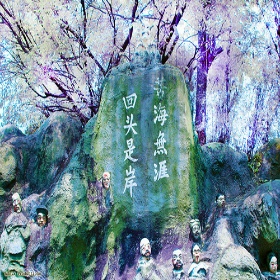 苦海無涯
回头是岸